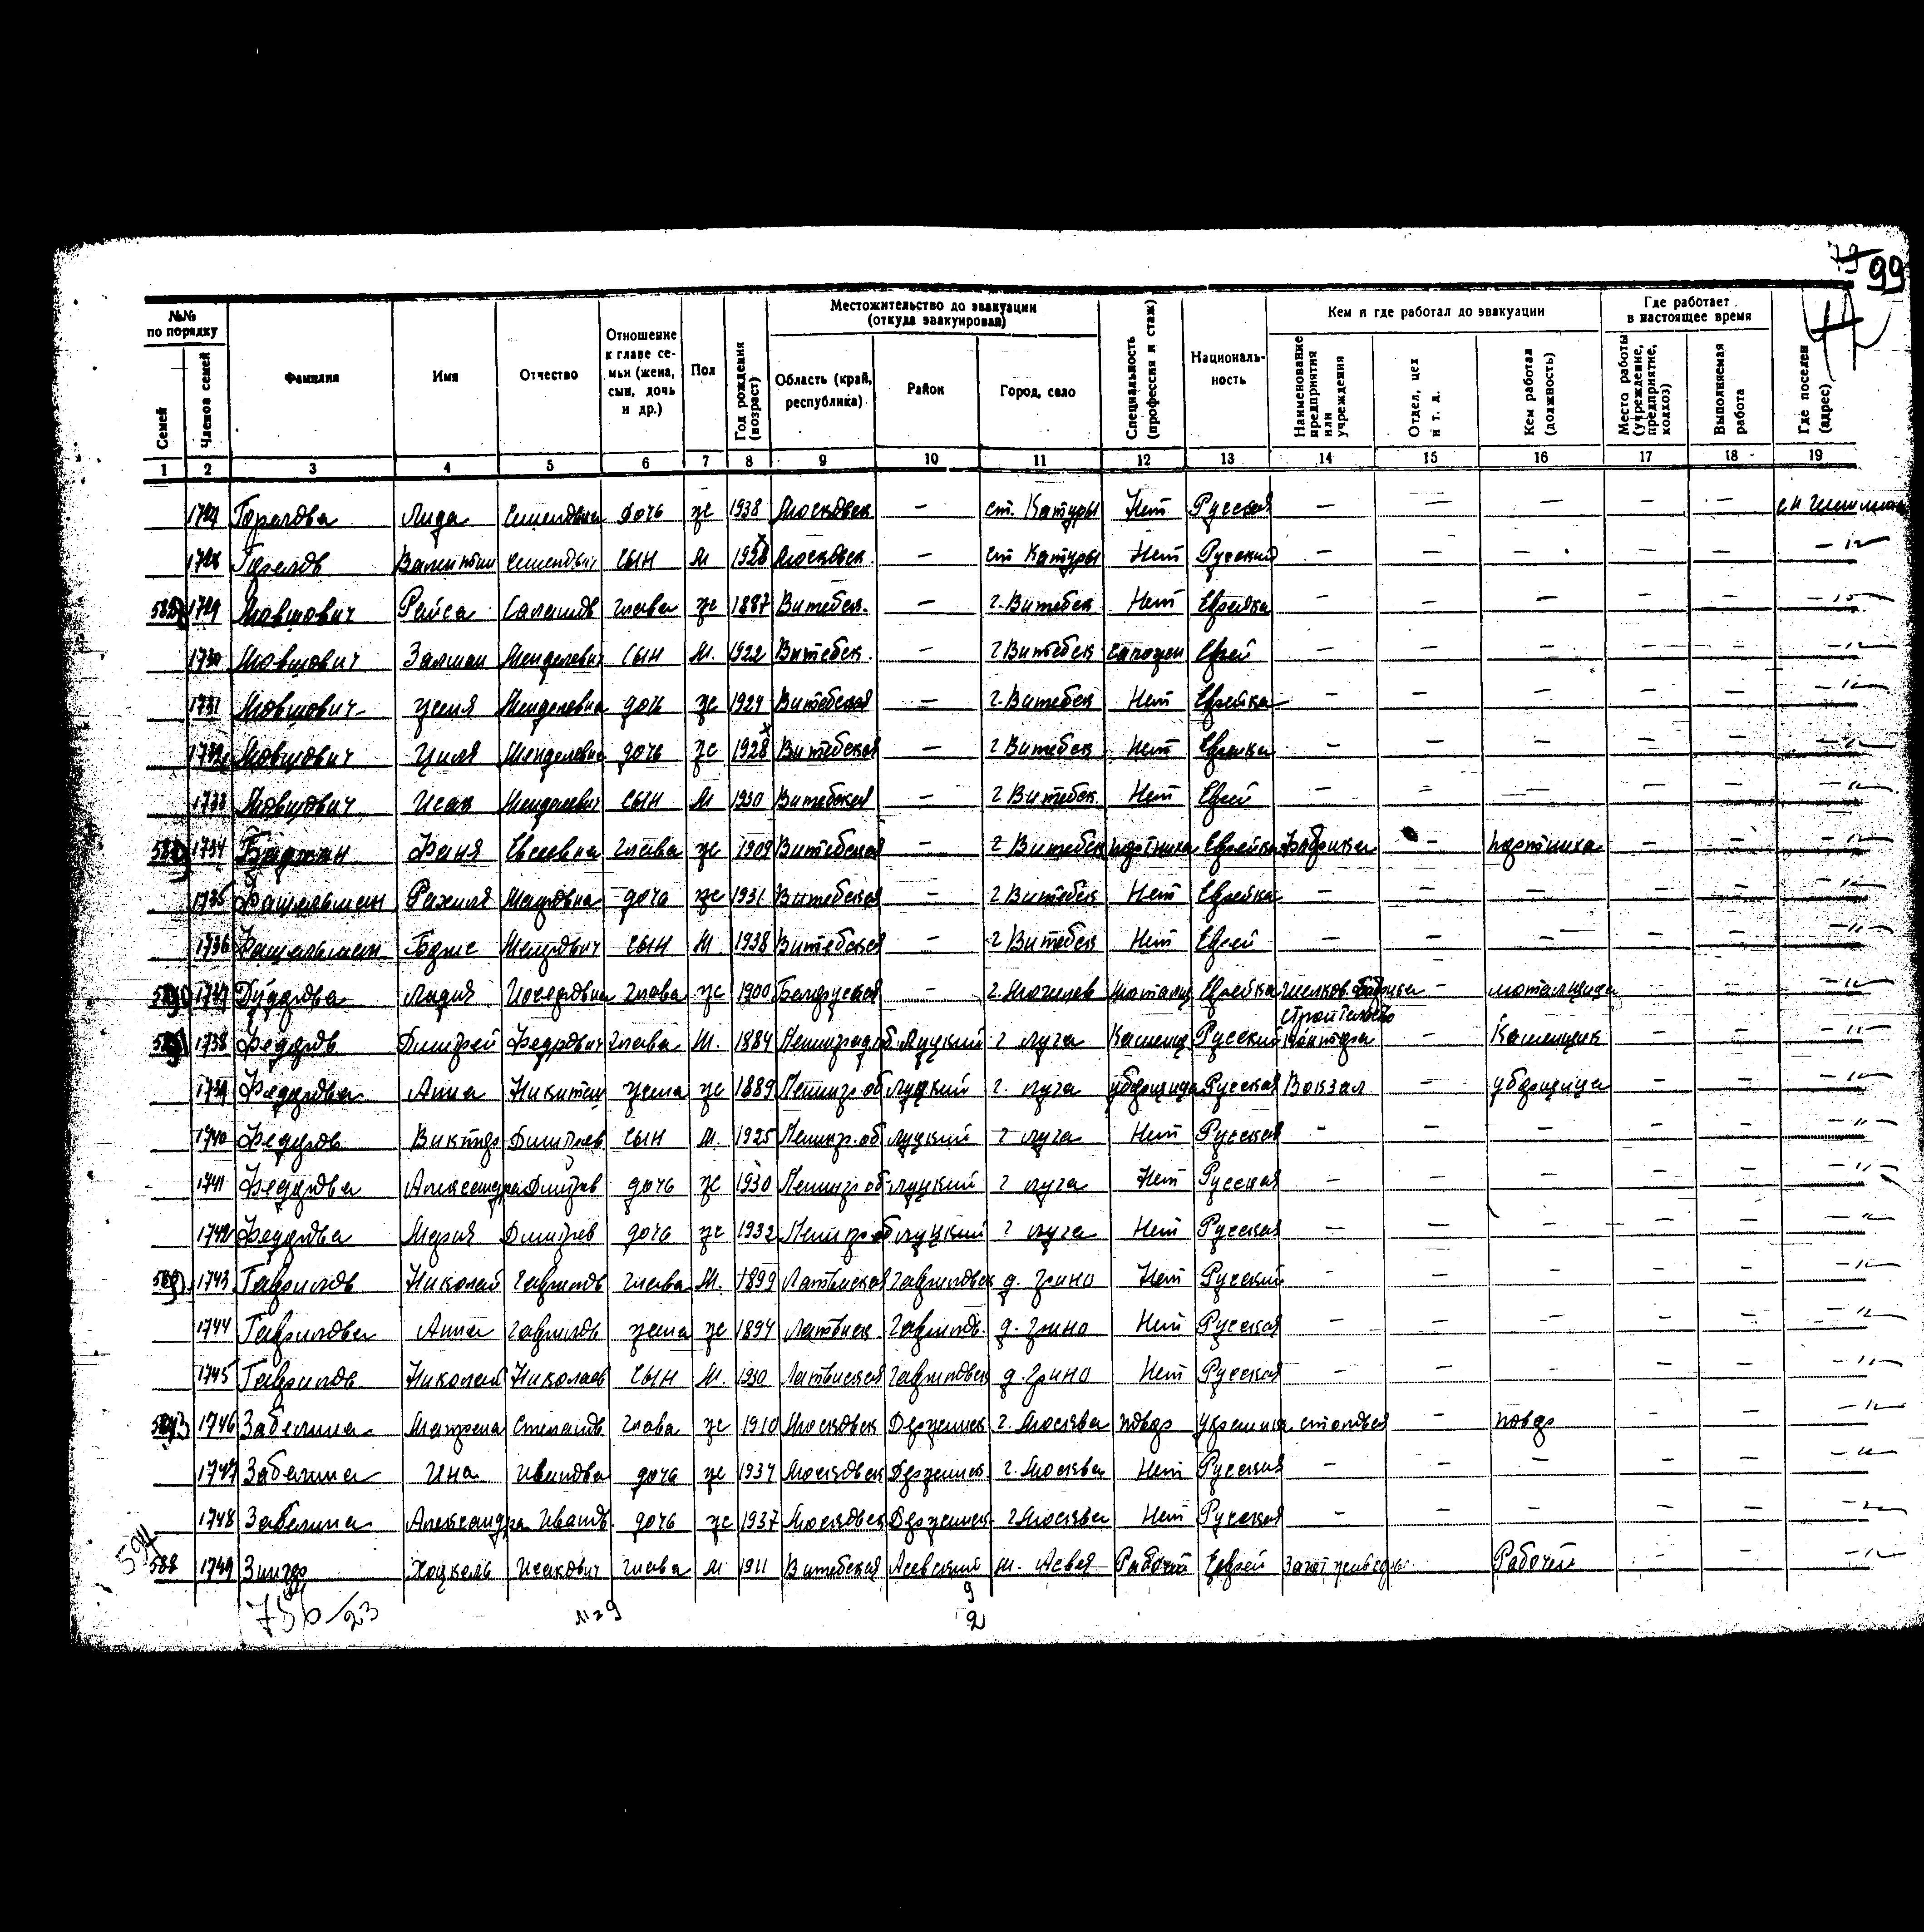 99
№№ по порядку
Семей
Членов семей
Фамилия
Имя
Отчество
Отношение к главе семьи (жена, сын, дочь и др.)
Пол
Год рождения (возраст)
Местожительство до эвакуации (откуда эвакуирован)
Область (край, республика)
Район
Город, село
Специальность (профессия и стаж)
Националь-ность
Кем и где работал до эвакуации
Наименование предприятия или учреждения
Отдел, цех и т. д.
Кем работал (должность)
Где работает в настоящее время
Место работы (учреждение, предприятие, колхоз)
Выполняемая работа
Где поселен (адрес)
1 2 3 4 5 6 7 8 9 10 11 12 13 14 15 16 17 18 19
Горелова Лида Семеновна дочь ж 1938 Московск. — ст. Катуры Нет Русская — — — — —
1728 Горелов Валентин Семенович сын м 1928 Московск. — ст Катуры Нет Русский — — — — — —"—
1729 Мовшович Раиса глава ж 1887 Витебск. — г. Витебск Нет Еврейка — — — — — —"—
1730 Мовшович Залман Менделевич сын м. 1922 Витебск. — г Витебск Еврей — — — — — —"—
1731 Мовшович Женя Менделевна дочь ж 1924 Витебская — г. Витебск Нет Еврейка — — — — — —"—
1732 Мовшович Циля Менделевна дочь ж 1928 Витебская — г Витебск Нет Еврейка — — — — — —"—
1733 Мовшович Исак Менделевич сын м 1930 Витебская — г Витебск Нет Еврей — — — — — —"—
1734 Фаня Евсеевна глава ж 1909 Витебская — г Витебск портниха Еврейка Фабрика — портниха — — —"—
1735 Рахиля Мееровна дочь ж 1931 Витебская — г Витебск Нет Еврейка — — — — — —"—
1736 Борис Меерович сын м. 1938 Витебская — г Витебск Нет Еврей — — — — — —"—
590 1737 Лидия глава ж 1900 Белоруская — г. Могилев Еврейка Шелков. фабрика — мотальщица — — —"—
1738 Федоров Дмитрий Федрович глава м. 1884 Ленинград.об. Луцкий г Луга Каменщ Русский Строительство Контора — Каменщик — — —"—
1739 Федорова Анна Никитин жена ж 1889 Ленингр.об Луцкий г. Луга уборщица Русская Вокзал — уборщица — — —"—
1740 Федоров Виктор Дмитрев сын м. 1925 Ленингр.об Луцкий г Луга Нет Русская — — — — — —"—
1741 Федорова Александра Дмитрев дочь ж 1930 Ленингр об. Луцкий г Луга Нет Русская — — — — — —"—
1742 Федорова Мария Дмитрев дочь ж 1932 Ленингр.об Луцкий г Луга Нет Русская — — — — — —"—
1743 Гаврилов Николай Гаврилов глава м. 1899 Латвиская Гавриловск д. Грино Нет Русский — — — — — —"—
1744 Гаврилова Анна Гаврилов жена ж 1894 Латвиск. Гаврилов. д. Грино Нет Русская — — — — — —"—
1745 Гаврилов Николай Николаев сын м. 1930 Латвиская Гавриловск д. Грино Нет Русская — — — — — —"—
593 1746 Забелина Матрена Степанов глава ж 1910 Московск Дзержинск г. Москва повар Украинка столовая — повар — — —"—
1747 Забелина Ина Ивановна дочь ж 1934 Московск Дзержинск г. Москва Нет Русская — — — — — —"—
1748 Забелина Александра Иванов. дочь ж 1937 Московск Дзержинск. г Москва Нет Русская — — — — — —"—
594
588 1749 Зингер Хацкель Исакович глава м 1911 Витебская Асвейский м. Асвея Рабочий Еврей Рабочий — — —"—
756/23
м=9
9
2